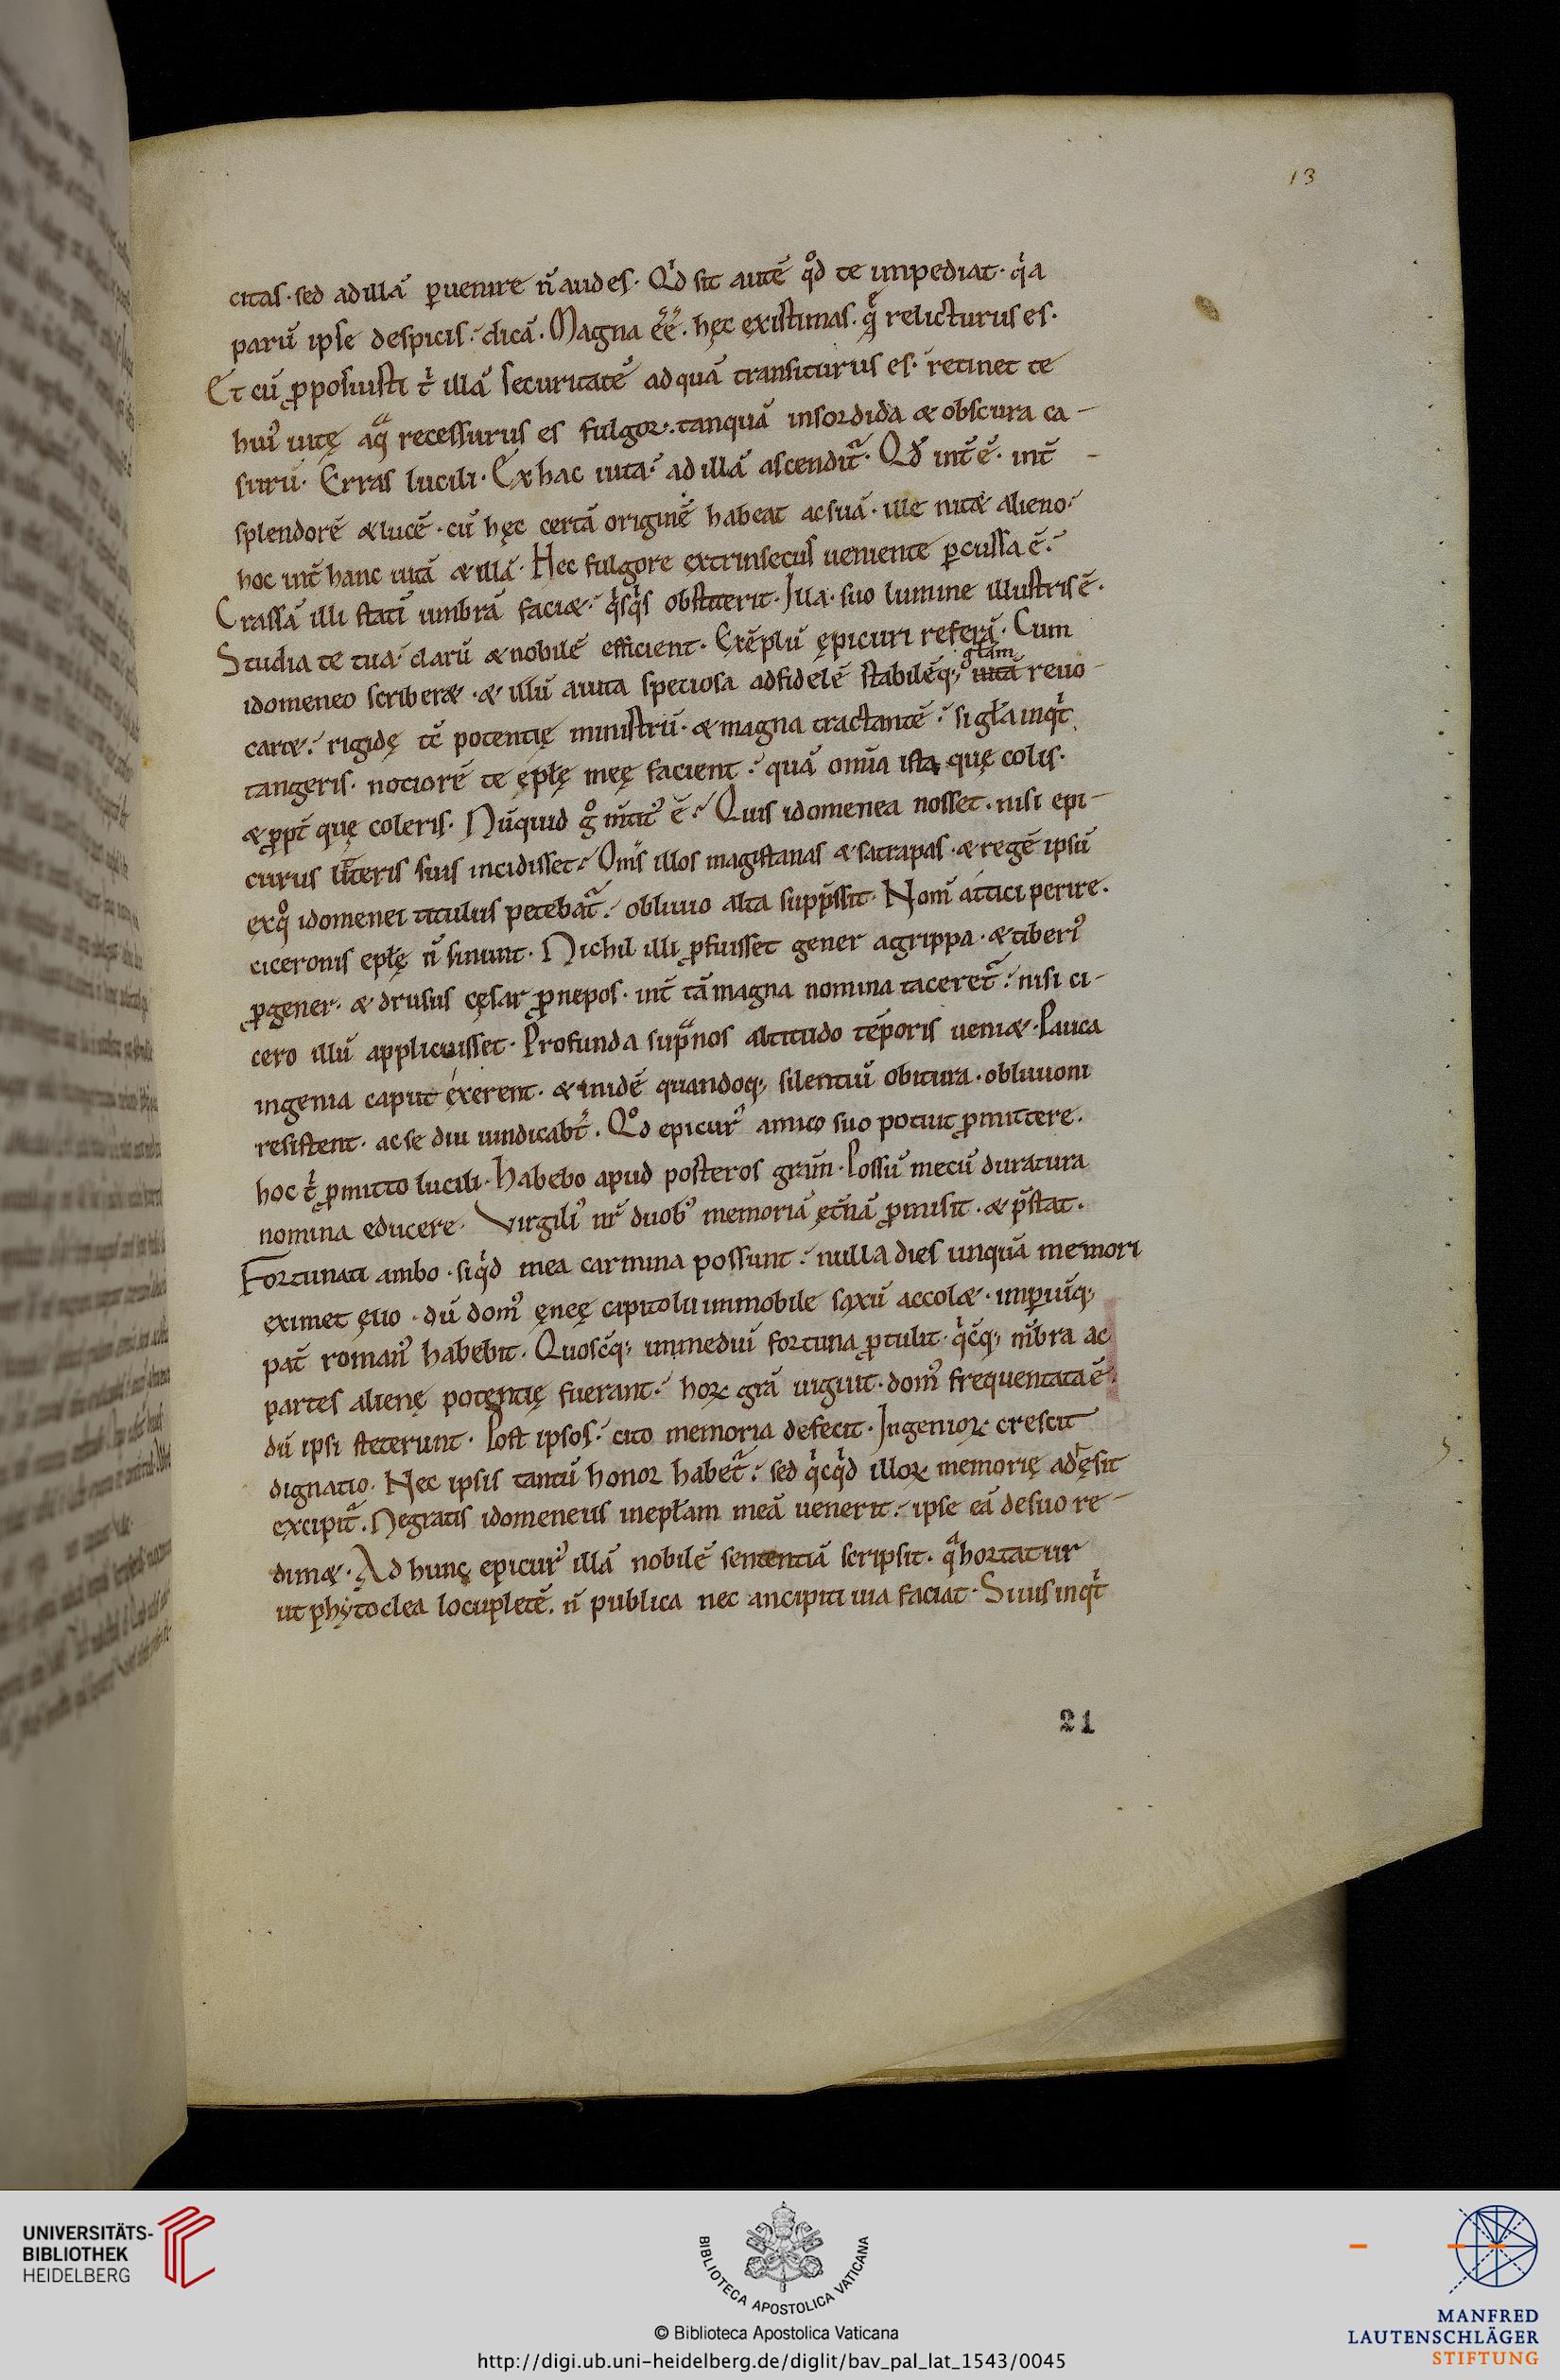 13
citas · sed ad illā ꝑuenire n̄ audes · Qͥd sit autē qͦd te impediat · qͥa
parū ipse despicis dicā · Magna eē̄ · hęc existimas · q̄ͥ relicturus es ·
Et cū ꝓposuisti tͥ illā securitatē ad quā transiturus es · retinet te
huiꝰ uitę a qͣ recessurus es fulgor · tanquā in sordida & obscura ca-
surū · Erras lucili · Ex hac uita ad illā ascenditᷓ · Qd̄ int̄ ē · int̄
splendorē & lucē · cū hęc certā originē habeat ac suā · ille nitæ alieno
hoc int̄ hanc uitā & illā · Hec fulgore extrinsecus ueniente ꝑcussa ē
Crassā illi statī umbrā faciæ qͥsqͥs obstiterit · Illa · suo lumine illustris ē ·
Studia te tua clarū & nobilē efficient · Exēplū ępicuri referā · Cum
glam
idomeneo scriberæ · & illū a uita speciosa ad fidelē stabilēq; uitā reuo-
caræ rigidę tc̄ potentię ministrū · & magna tractantē si gl̄a inqͥt
tangeris · notiorē te ępl̄ę meę facient quā om̄ia ista quę colis ·
& ꝓpt̄ quę coleris · Nūquid gͦ m̄titꝰ ē Quis idomenea nosset · nisi epi-
curus litteris suis incidisset Om̄s illos magistanas & satrapas · & regē ipsū
ex qͦ idomenei titulus petebatᷓ obliuio alta supp̄ssit · Nom̄ attici perire ·
ciceronis epl̄ę n̄ sinunt · Nichil illi ꝓfuisset gener agrippa · & tiberiꝰ
ꝓgener · & drusus cęsar ꝓnepos · int̄ tā magna nomina taceretᷓ nisi ci-
cero illū applicuisset · Profunda supᷓ nos altitudo tēporis ueniæ · Pauca
ingenia caput exerent · & in idē quandoq; silentiū obitura · obliuioni
resistent · ac se diu uindicabt̄ · Qͦd epicurꝰ amico suo potuit ꝓmittere ·
hoc tͥ ꝓmitto lucili · Habebo apud posteros gram̄ · Possū mecū duratura
nomina educere · Virgiliꝰ nr̄ duobꝰ memoriā ęt̄nā ꝓmisit · & p̄stat ·
Fortunati ambo · siqͥd mea carmina possunt nulla dies unquā memori
eximet ęuo · dū domꝰ ęneę capitolii immobile saxū accolæ · imꝑiūq;
pat̄ romanꝰ habebit · Quoscq̄; in mediū fortuna ꝓtulit · qͥcq̄; m̄bra ac
partes alienę potentię fuerant hoꝝ gr̄a uiguit · domꝰ frequentata ē
dū ipsi steterunt · Post ipsos cito memoria defecit · Ingenioꝝ crescit
dignatio · Nec ipsis tantū honor habetᷓ sed qͥcqͥd illoꝝ memorię adhęsit
excipitᷓ · Ne gratis idomeneus in epl̄am meā uenerit ipse eā de suo re-
dimæ · Ad hunc epicurꝰ illā nobilē sententiā scripsit · qᷓ hortatur
ut phytoclea locupletē · n̄ publica nec ancipiti uia faciat · Si uis inqͥt
21
UNIVERSITÄTS-
BIBLIOTHEK
HEIDELBERG
BIBLIOTECA APOSTOLICA VATICANA
© Biblioteca Apostolica Vaticana
http://digi.ub.uni-heidelberg.de/diglit/bav_pal_lat_1543/0045
MANFRED
LAUTENSCHLÄGER
STIFTUNG